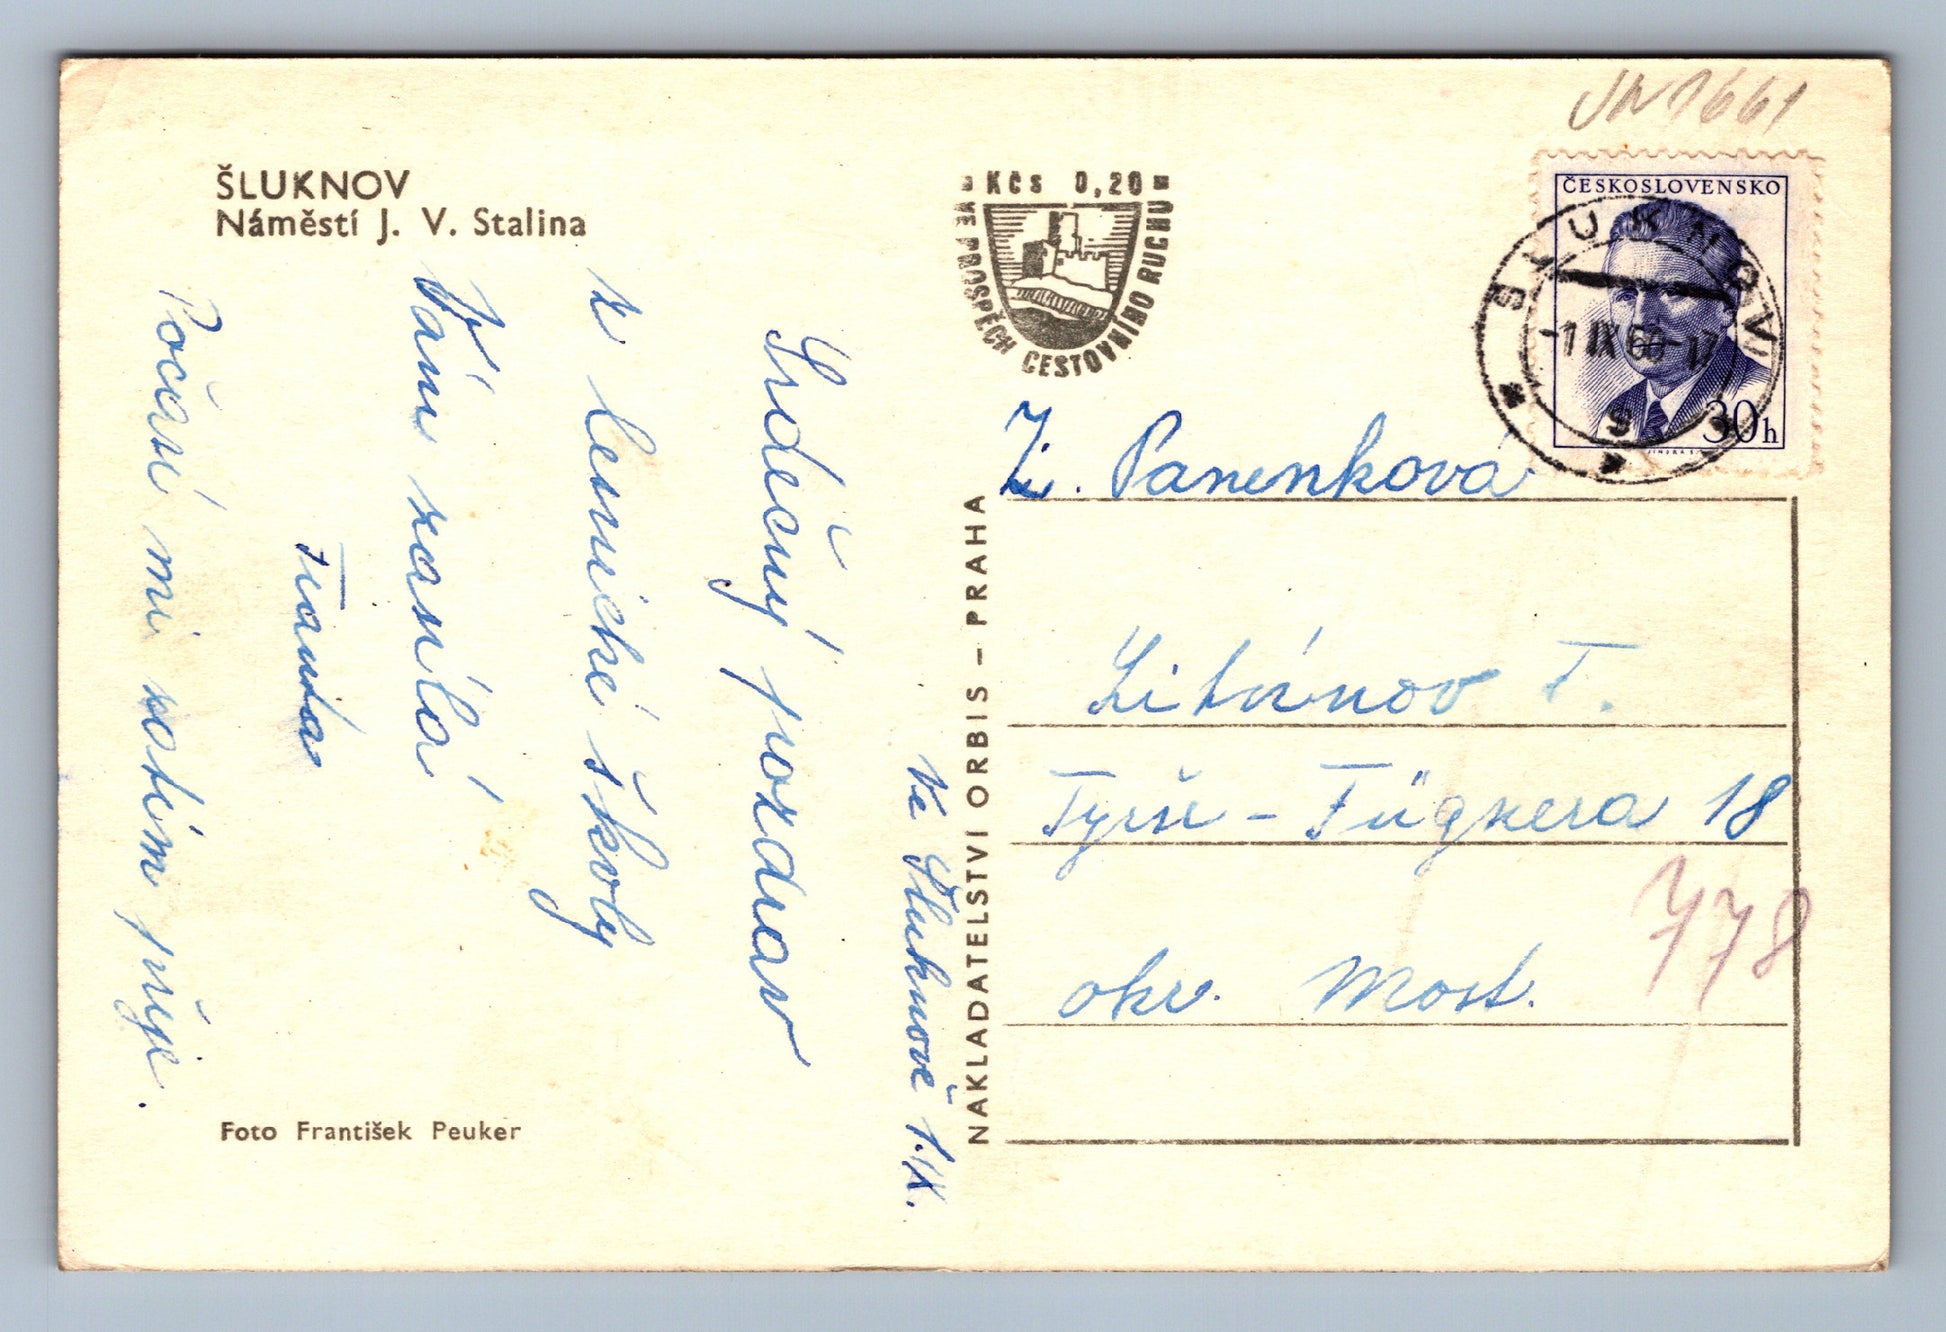 ŠLUKNOV
Náměstí J. V. Stalina
Ve Šluknově 1.IX.
Srdečný pozdrav
z lesnické školy
Vám zasílá
Franta
Počasí mi zatím přeje.
Foto František Peuker
NAKLADATELSTVÍ ORBIS – PRAHA
KČS 0,20
VE PROSPĚCH CESTOVNÍHO RUCHU
ČESKOSLOVENSKO
30h
ŠLUKNOV 1
-1 IX 60-17
JN1661
Panenková
Litvínov I.
Tyrše - Fügnera 18
okr. Most.
778